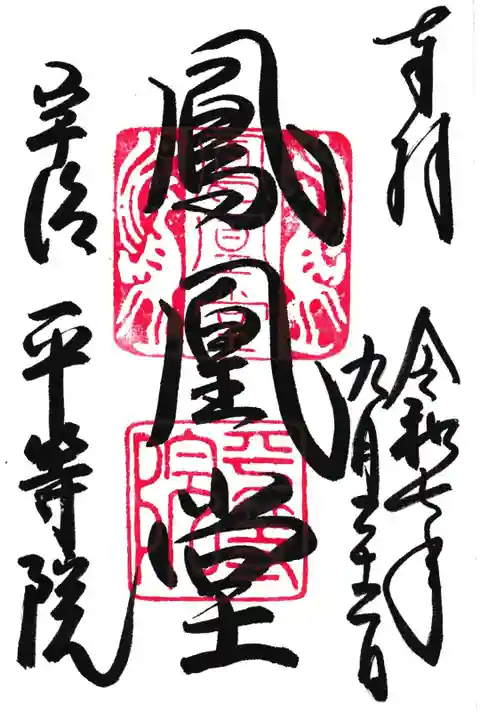 奉拝
令和七年
九月二十二日
鳳凰堂
宇治
平等院